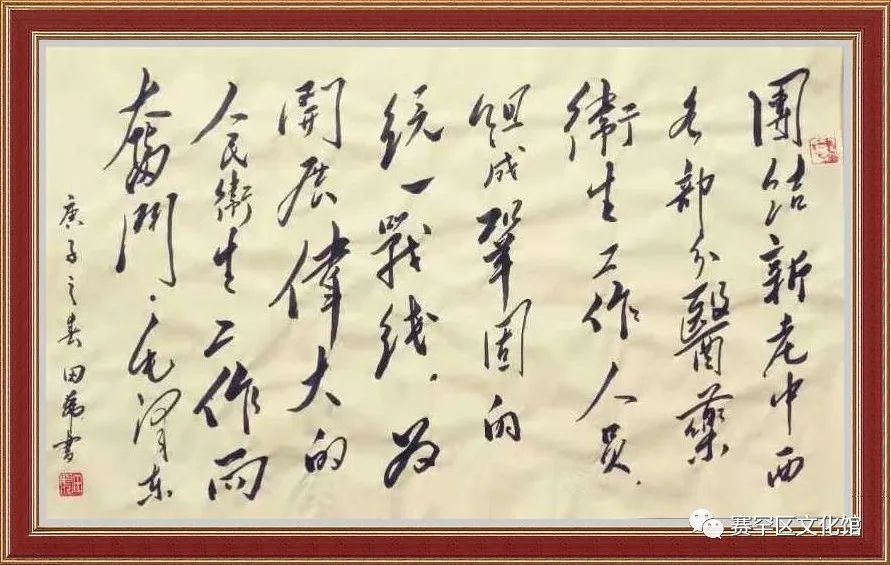 團结新老中西
各部分醫藥
衛生工作人员，
组成鞏固的
统一戰线，为
開展偉大的
人民衛生工作而
奮鬥．毛泽东
庚子之春田爲書
赛罕区文化馆